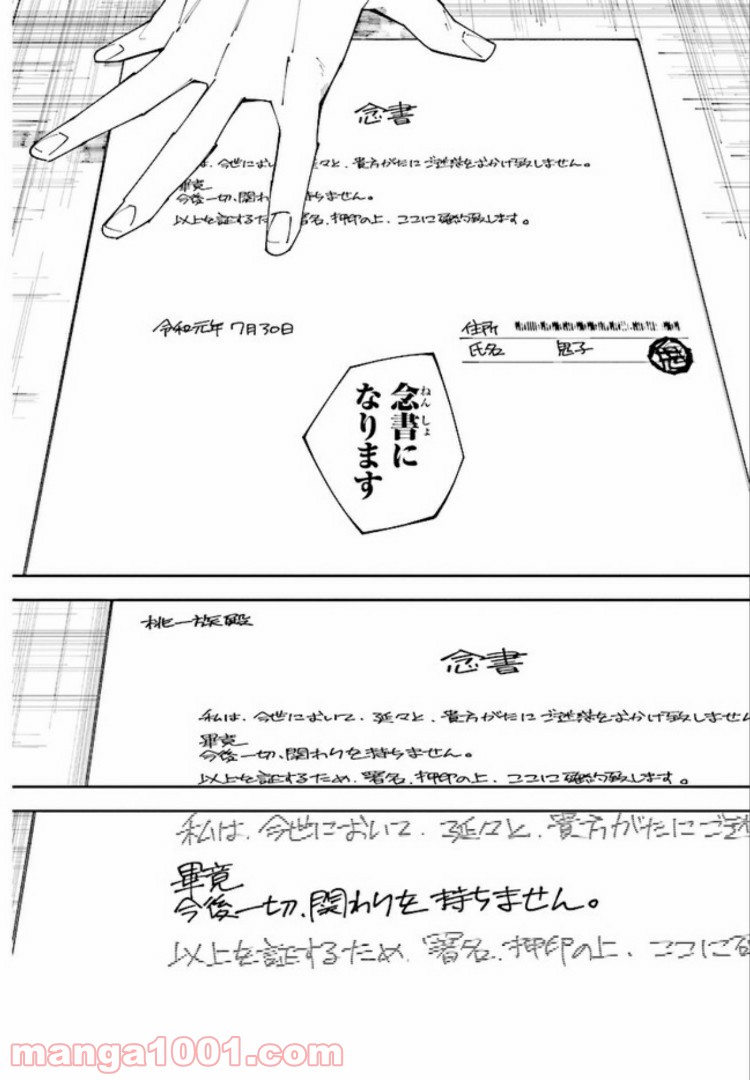 念書
は、今世におい
々と、貴方がたにご迷惑をおかけ致しません。
畢竟
今後一切、関わ
持ちません。
以上を証するた
署名、押印の上、ココに確約致します。
令和元年7月30日
住所
氏名 鬼子
鬼
念書に
ねんしょ
なります
桃一族殿
念書
私は、今世において、延々と、貴方がたにご迷惑をおかけ致しません
畢竟
今後一切、関わりを持ちません。
以上を証するため、署名、押印の上、ココに確約致します。
私は、今世において、延々と、貴方がたにご迷
畢竟
今後一切、関わりを持ちません。
以上を証するため、署名、押印の上、ココに確
manga1001.com